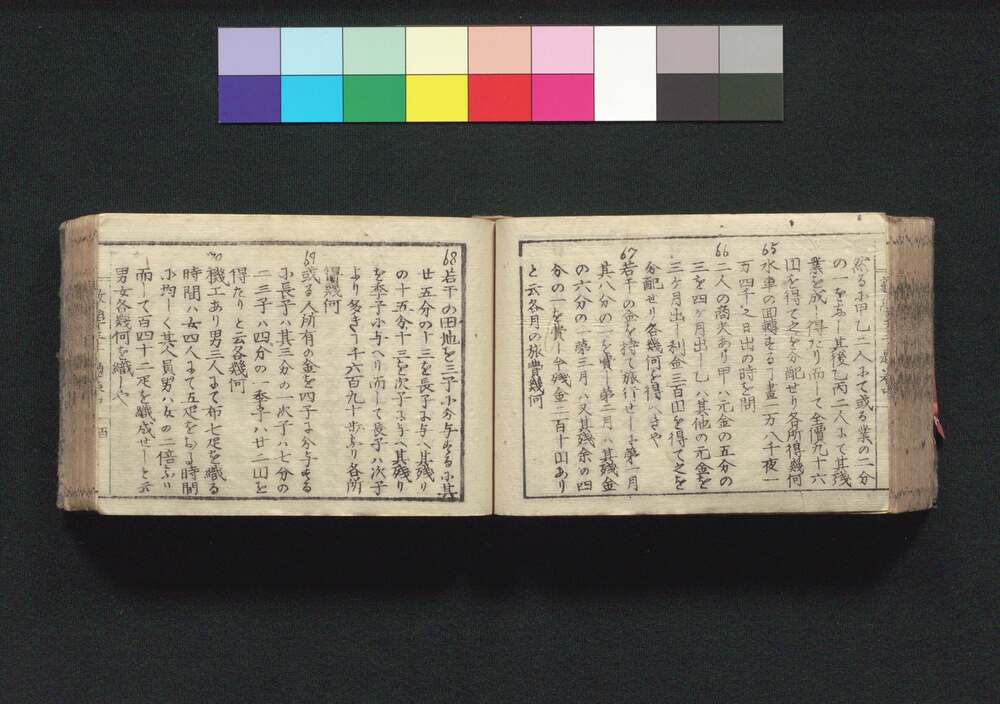 然るに甲乙二人にて或る業の二分
の一をあし其後乙丙二人にて其残
業を成し得たり而して全價九十六
円を得て之を分配せり各所得幾何
65 水車の回轉するヿ晝二万八千夜一
万四千之日出の時を問
66 二人の商夫あり甲ハ元金の五分の
三を四ヶ月出し乙ハ其他の元金を
三ヶ月出し利金三百円を得て之を
分配せり各幾何を得へきや
67 若干の金を持て旅行せしに第一月
其八分の一を費し第二月ハ其残金
の六分の一第三月ハ又其残余の四
分の一を費し今残金二百十円あり
と云各月の旅費幾何
68 若干の田地を三子に分与するに其
廿五分の十三を長子に与へ其残り
の十五分十三を次子に与へ其残り
を季子に与へり而して長子ハ次子
より多きヿ千六百九十歩ふり各所
得幾何
69 或る人所有の金を四子に分与する
に長子ハ其三分の一次子ハ七分の
二三子ハ四分の一季子ハ廿二円を
得たりと云各幾何
70 機工あり男三人にて布七疋を織る
時間ハ女四人にて五疋をおる時間
に均しく其人員男ハ女の二倍ふり
而して百四十二疋を織成せしと云
男女各幾何を織しや